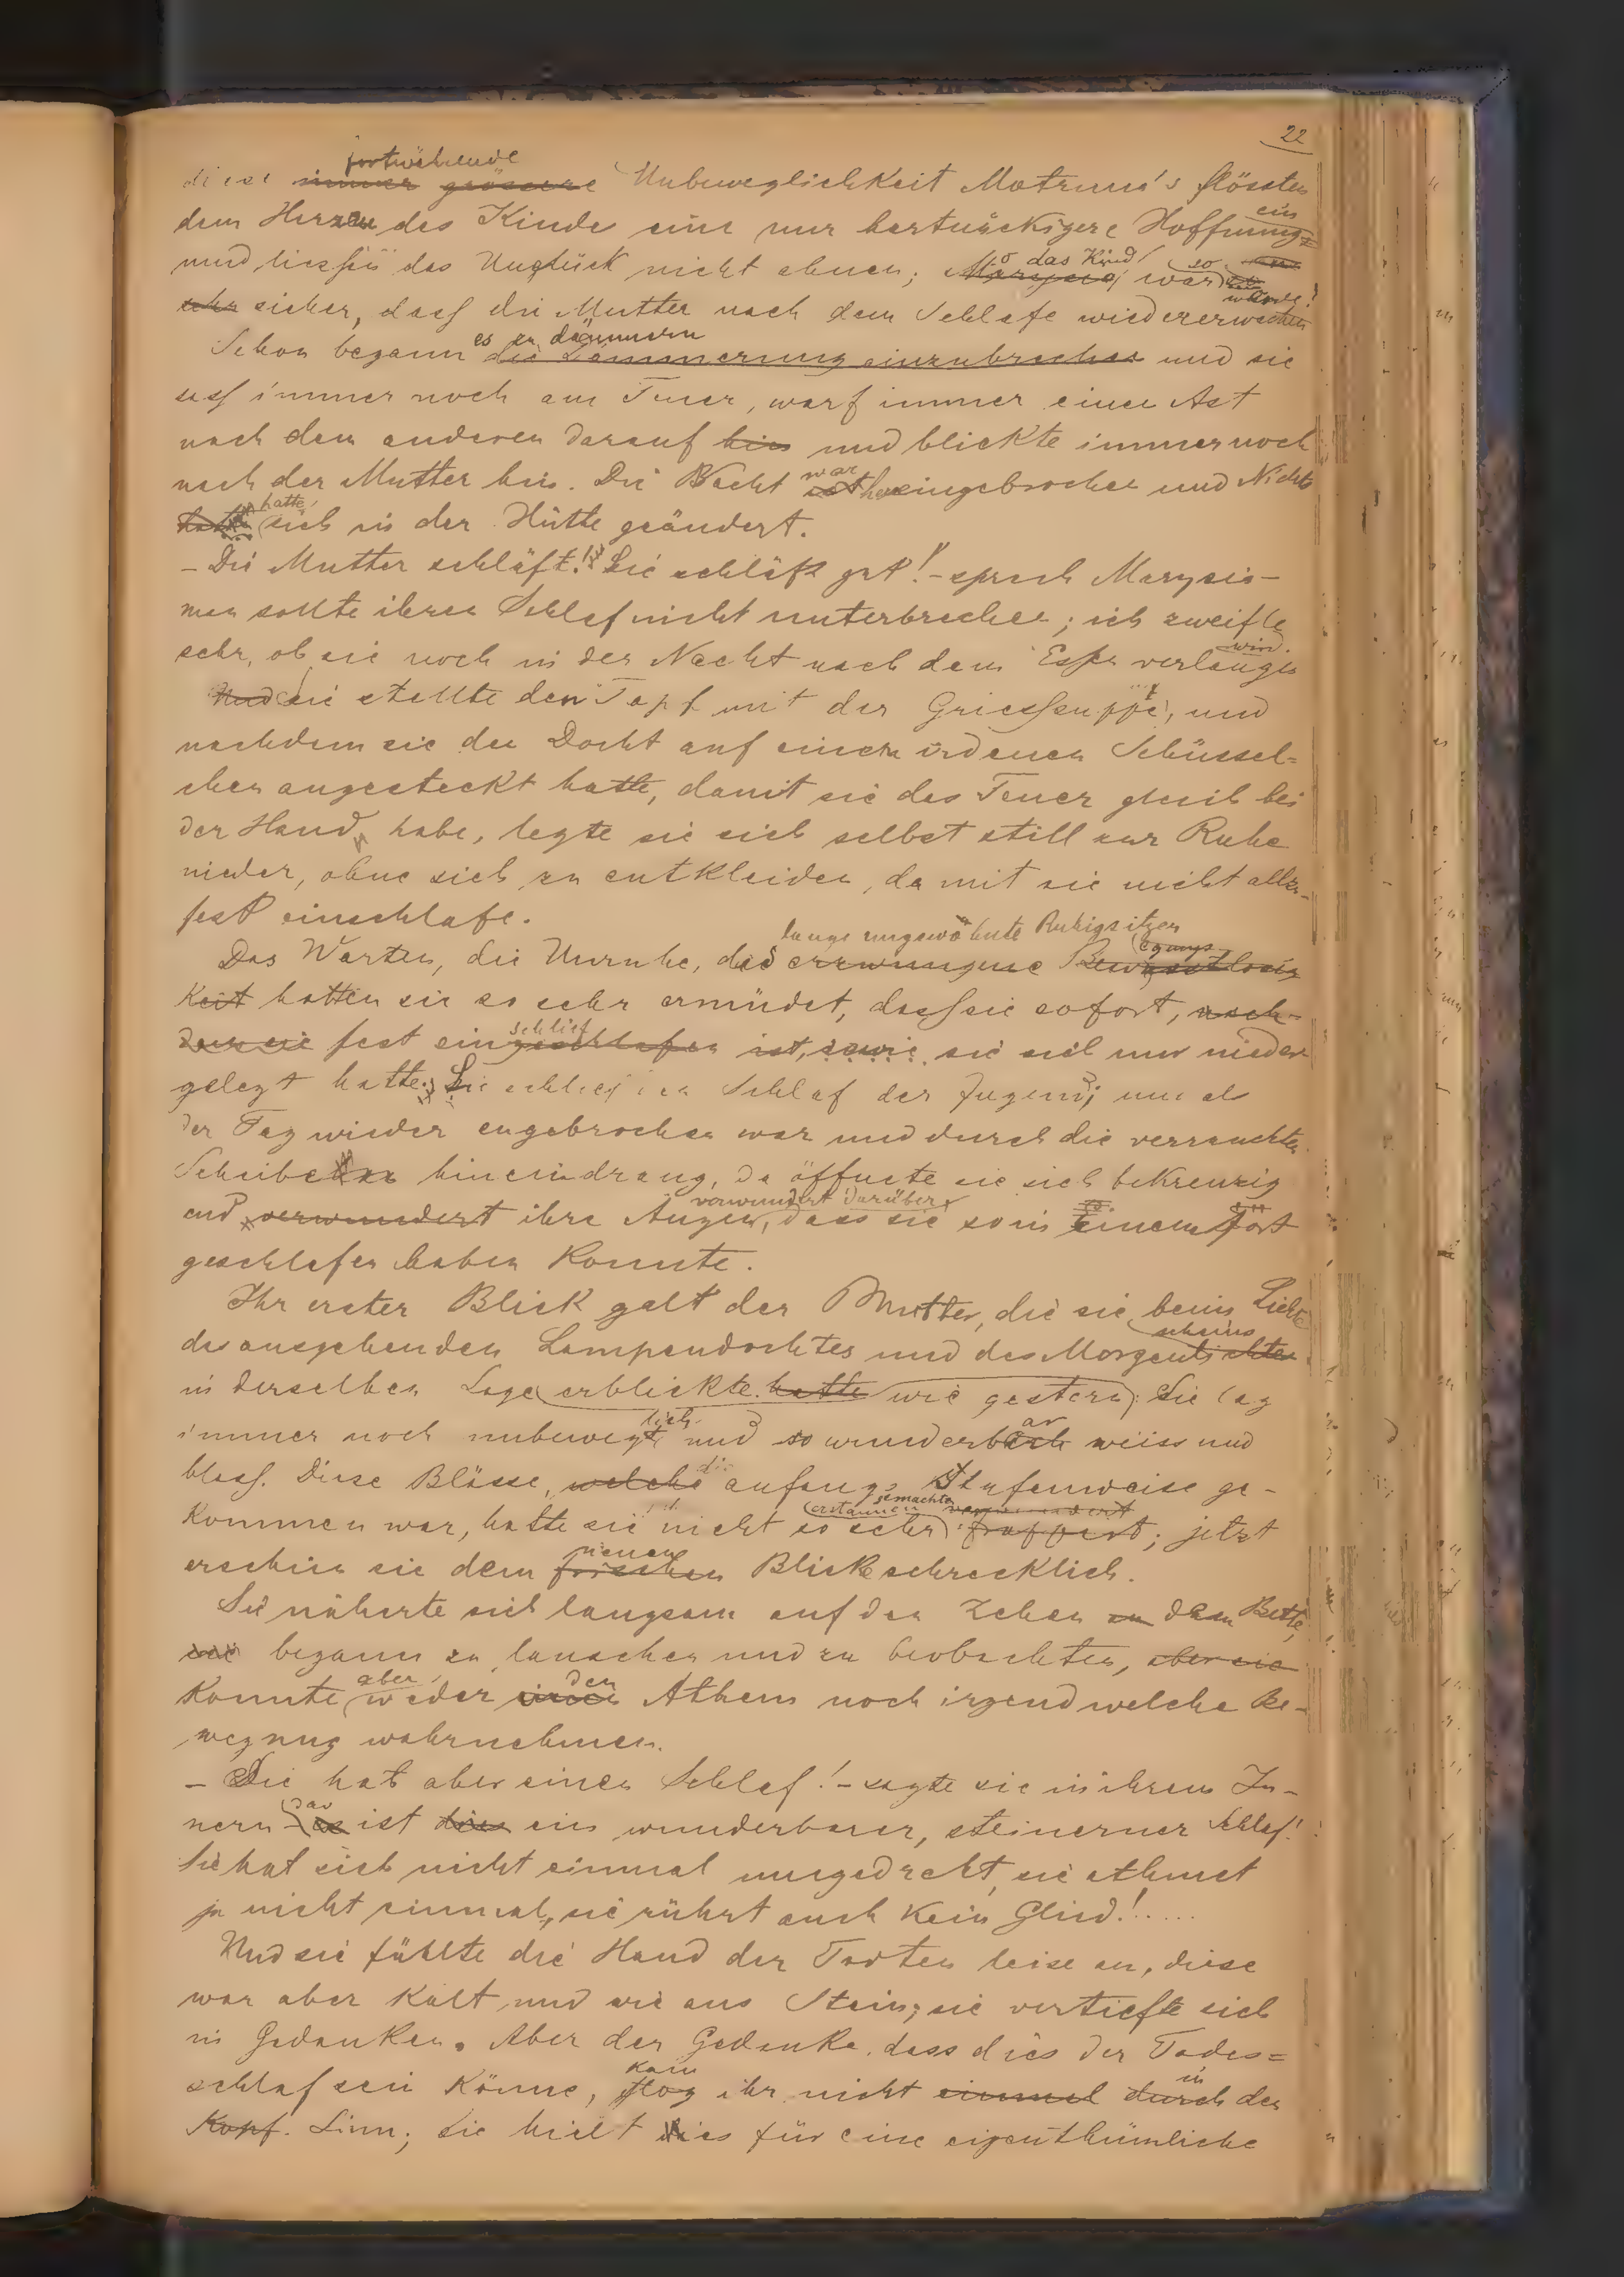 22
fortwährende
diese immer grössere Unbeweglichkeit Motruna's flössten
dem Herzen des Kindes eine nur hartnäckigere Hoffnung ein
und liessen das Unglück nicht ahnen; Marysia so das Kind war so
sehr sicher, dass die Mutter nach dem Schlafe wiedererwachen würde!
Schon begann die Dämmerung einzubrechen es zu dämmern und sie
sass immer noch am Feuer, warf immer einen Ast
nach dem anderen darauf hin und blickte immer noch
nach der Mutter hin. Die Nacht ist war hereingebrochen und Nichts
hatte hatte sich in der Hütte geändert.
– Die Mutter schläft! Sie schläft gut! – sprach Marysia –
man sollte ihren Schlaf nicht unterbrechen; ich zweifle
sehr, ob sie noch in der Nacht nach dem Essen verlangen wird.
Und sie stellte den Topf mit der Griessuppe, und
nachdem sie den Docht auf einem irdenen Schüssel=
chen angesteckt hatte, damit sie das Feuer gleich bei
der Hand habe, legte sie sich selbst still zur Ruhe
nieder, ohne sich zu entkleiden, damit sie nicht allzu-
fest einschlafe.
lange ungewohnte Ruhigsitzen
Das Warten, die Unruhe, das erzwungene Bewegungslosig
keit hatten sie so sehr ermüdet, dass sie sofort, nach-
dem sie fest eingeschlafen schlief ist, sowie sie sich nur nieder
gelegt hatte; Sie schlief den Schlaf der Jugend; und als
der Tag wieder angebrochen war und durch die verrauchten
Scheiben hineindrang, da öffnete sie sich bekreuzig
end verwundert ihre Augen, verwundert darüber, dass sie so in einem fort
geschlafen haben konnte.
Ihr erster Blick galt der Mutter, die sie beim Lichte
des ausgehenden Lampendochtes und des Morgenlichtes scheins
in derselben Lage erblickte hatte wie gestern; Sie lag
immer noch unbeweglich und so wunderbar weiss und
blass. Diese Blässe, welche die anfangs stufenweise ge-
kommen war, hatte sie nicht so sehr erstaunen gemacht verwundert frappirt; jetzt
erschien sie dem forschen neuen Blicke schrecklich.
Sie näherte sich langsam auf den Zehen an dem Bette,
sie begann zu lauschen und zu beobachten, aber sie
konnte aber weder einen den Athem noch irgendwelche Be-
wegung wahrnehmen.
– Die hat aber einen Schlaf! – sagte sie in ihrem In-
nern – es das ist dies ein wunderbarer, steinerner Schlaf!
Sie hat sich nicht einmal umgedreht, sie athmet
ja nicht einmal, sie rührt auch kein Glied!.....
Und sie fühlte die Hand der Todten leise an, diese
war aber kalt und wie aus Stein; sie vertiefte sich
in Gedanken. Aber der Gedanke, dass dies der Todes=
schlaf sein könne, flog kam ihr nicht einmal durch in den
Kopf. Sinn; sie hielt dies für eine eigenthümliche